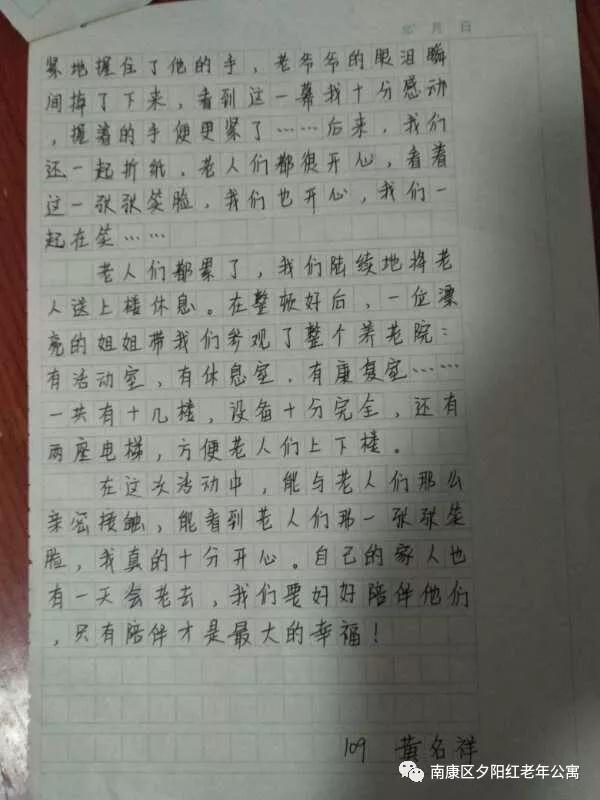 年 月 日
紧地握住了他的手，老爷爷的眼泪瞬
间掉了下来，看到这一幕我十分感动
，握着的手便更紧了……后来，我们
还一起折纸，老人们都很开心，看着
这一张张笑脸，我们也开心，我们一
起在笑……
老人们都累了，我们陆续地将老
人送上楼休息。在整顿好后，一位漂
亮的姐姐带我们参观了整个养老院：
有活动室，有休息室，有康复室……
一共有十几楼，设备十分完全，还有
两座电梯，方便老人们上下楼。
在这次活动中，能与老人们那么
亲密接触，能看到老人们那一张张笑
脸，我真的十分开心。自己的家人也
有一天会老去，我们要好好陪伴他们
，只有陪伴才是最大的幸福！
109 黄名祥
南康区夕阳红老年公寓